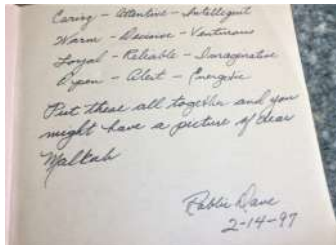 Caring - Attentive - Intelligent
Warm - Decisive - Venturous
Loyal - Reliable - Imaginative
Open - Alert - Energetic
Put these all together and you
might have a picture of dear
Malkah
Rabbi Dave
2-14-97